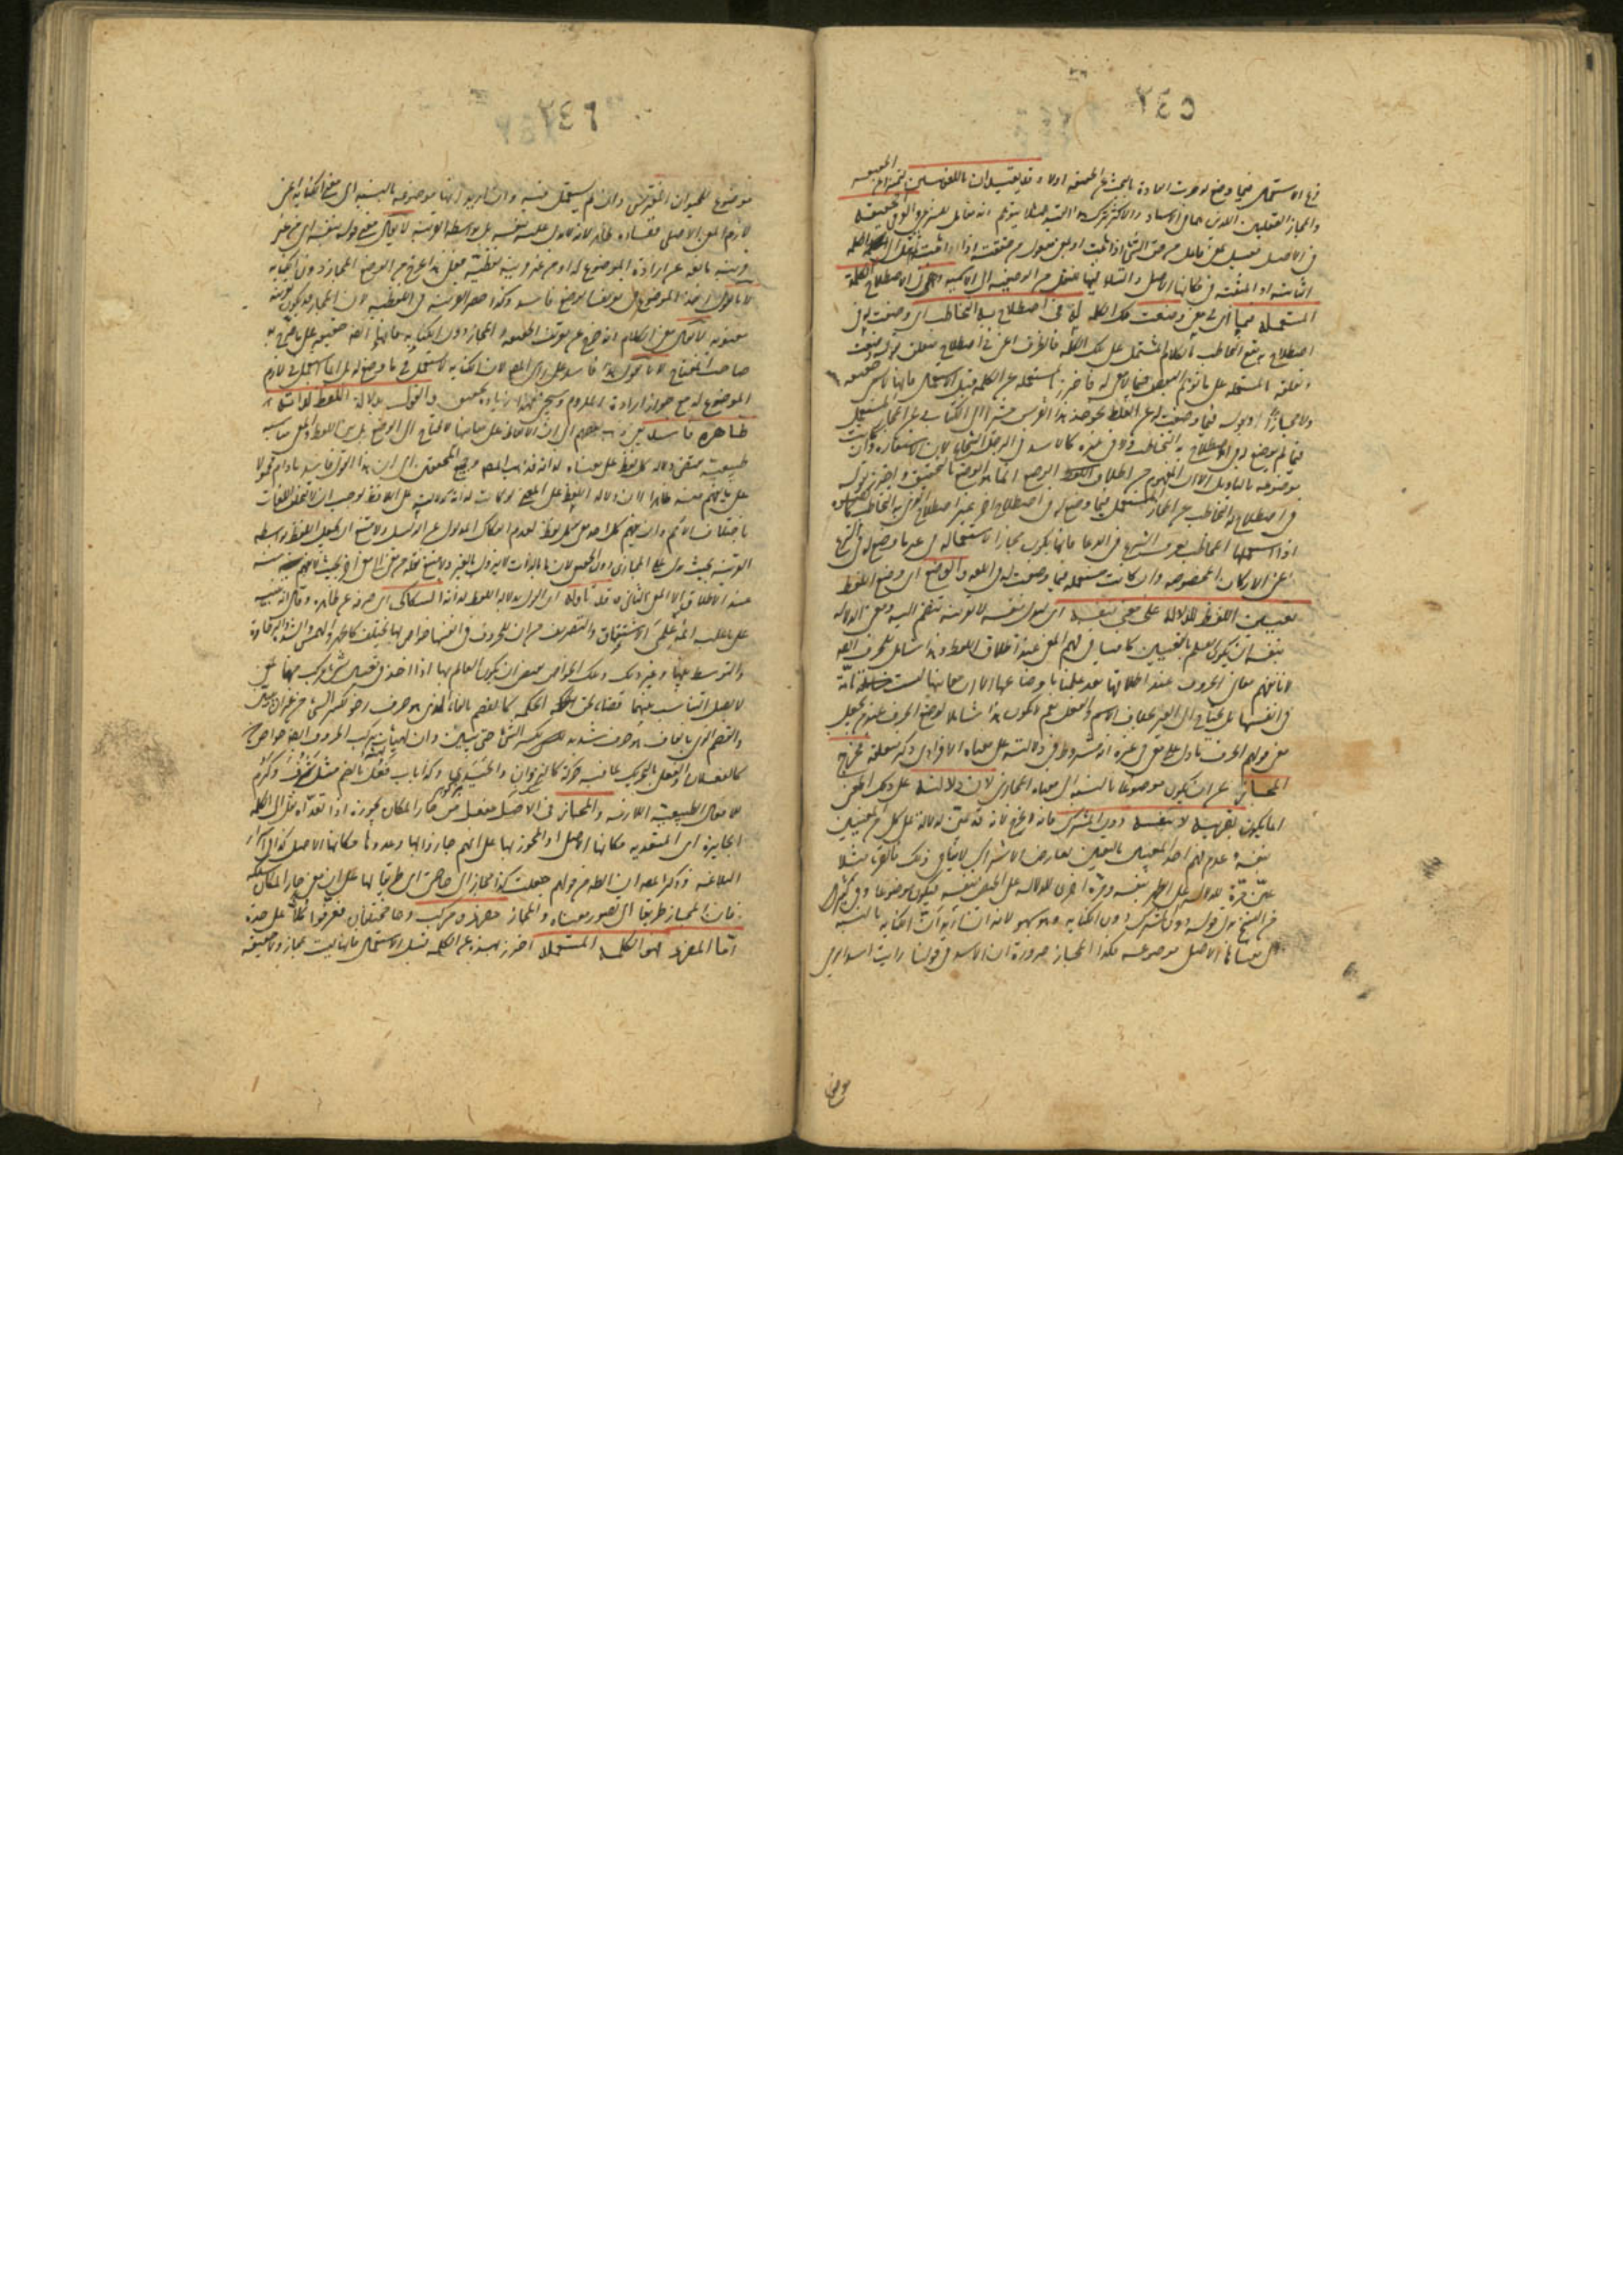 ٢٤٥
فرع الاستعمال فيما وضع له جرت العادة بالبحث عن الحقيقة اولا وقد يقيدان باللغويين ليتميزا عن الحقيقة
والمجاز العقليين اللذين هما في الاسناد والاكثر ترك هذا التقييد لئلا يتوهم انه مقابل للشرعي والعرفي الحقيقة
في الاصل فعيل بمعنى فاعل من حق الشئ اذا ثبت او بمعنى مفعول من حققته اذا اثبته نقل الى الكلمة
الثابتة او المثبتة في مكانها الاصلي والتاء فيها للنقل من الوصفية الى الاسمية وهي في الاصطلاح الكلمة
المستعملة فيما اي في معنى وضعت تلك الكلمة له في اصطلاح به التخاطب اي وضعت له في
اصطلاح به يقع التخاطب بالكلام المشتمل على تلك الكلمة فالظرف اعني في اصطلاح متعلق بقوله وضعت
وتعلقه بالمستعملة على ما توهمه البعض مما لا معنى له فاحترز بالمستعملة عن الكلمة قبل الاستعمال فانها لا تسمى حقيقة
ولا مجازا وبقوله فيما وضعت له عن الغلط نحو خذ هذا الفرس مشيرا الى الكتاب وعن المجاز المستعمل
فيما لم يوضع له في اصطلاح به التخاطب ولا في غيره كالاسد في الرجل الشجاع لان الاستعارة وان كانت
موضوعة بالتاويل الا ان المفهوم من اطلاق الوضع انما هو الوضع بالتحقيق واحترز بقوله
في اصطلاح به التخاطب عن المجاز المستعمل فيما وضع له في اصطلاح اخر غير اصطلاح الذي به التخاطب كالصلوة
اذا استعملها المخاطب بعرف الشرع في الدعاء فانها تكون مجازا لاستعماله في غير ما وضع له في الشرع
اعني الاركان المخصوصة وان كانت مستعملة فيما وضعت له في اللغة والوضع اي وضع اللفظ
تعيين اللفظ للدلالة على معنى بنفسه اي ليدل بنفسه لا بقرينة تنضم اليه ومعنى الدلالة
بنفسه ان يكون العلم بالتعيين كافيا في فهم المعنى عند اطلاق اللفظ وهذا شامل للحرف ايضا
لانا نفهم معاني الحروف عند اطلاقها بعد علمنا باوضاعها الا ان معانيها ليست تامة
في انفسها بل تحتاج الى الغير بخلاف الاسم والفعل نعم لا يكون هذا شاملا لوضع الحرف عند من يجعل
معنى قولهم الحرف ما دل على معنى في غيره انه مشروط في دلالته على معناه الافرادي ذكر متعلقه فخرج
المجاز عن ان يكون موضوعا بالنسبة الى معناه المجازي لان دلالته على ذلك المعنى
انما يكون بقرينة لا بنفسه دون المشترك فانه لم يخرج لانه قد عين للدلالة على كل من المعنيين
بنفسه وعدم فهم احد المعنيين بالتعيين لعارض الاشتراك لا ينافي ذلك فالقرء مثلا
عين مرة للدلالة على الطهر بنفسه ومرة اخرى للدلالة على الحيض بنفسه فيكون موضوعا وفي كثير
من النسخ بدل قوله دون المشترك دون الكناية وهو سهو لانه ان اريد ان الكناية بالنسبة
الى معناها الاصلي موضوعة فكذا المجاز ضرورة ان الاسد في قولنا رايت اسدا يرمي
موضوع
٢٤٦
موضوع للحيوان المفترس وان لم يستعمل فيه وان اريد انها موضوعة بالنسبة الى معنى الكناية اعني
لازم المعنى الاصلي ففساده ظاهر لانه لا يدل عليه بنفسه بل بواسطة القرينة لا يقال معنى قوله بنفسه اي من غير
قرينة مانعة عن ارادة الموضوع له او من غير قرينة لفظية فعلى هذا يخرج من الوضع المجاز دون الكناية
لانا نقول اخذ الموضوع في تعريف الوضع فاسد وكذا حصر القرينة في اللفظية لان المجاز قد يكون قرينته
معنوية لا يقال معنى الكلام انه خرج عن تعريف الحقيقة المجاز دون الكناية فانها ايضا حقيقة على ما صرح به
صاحب المفتاح لانا نقول هذا فاسد على راي المص لان الكناية لم تستعمل في ما وضع له بل انما استعمل في لازم
الموضوع له مع جواز ارادة الملزوم وسيجئ لهذا زيادة تحقيق والقول بدلالة اللفظ لذاته
ظاهره فاسد يعني ذهب بعضهم الى ان دلالة الالفاظ على معانيها لا تحتاج الى الوضع بل بين اللفظ والمعنى مناسبة
طبيعية تقتضي دلالة كل لفظ على معناه لذاته فذهب المص وجميع المحققين الى ان هذا القول فاسد ما دام محمولا
على ما يفهم منه ظاهرا لان دلالة اللفظ على المعنى لو كانت لذاته كدلالته على اللافظ لوجب ان لا يختلف اللغات
باختلاف الامم وان يفهم كل احد معنى كل لفظ لعدم انفكاك المدلول عن الدليل ولامتنع ان يجعل اللفظ بواسطة
القرينة بحيث يدل على المجازي دون الحقيقي لان ما بالذات لا يزول بالغير ولامتنع نقله من معنى الى معنى اخر بحيث لا يفهم منه
عند الاطلاق الا المعنى الثاني وقد تاوله اي القول بدلالة اللفظ لذاته السكاكي اي صرفه عن ظاهره وقال انه تنبيه
على ما عليه ائمة علمي الاشتقاق والتصريف من ان للحروف في انفسها خواص بها تختلف كالجهر والهمس والشدة والرخاوة
والتوسط بينهما وغير ذلك وتلك الخواص تقتضي ان يكون العالم بها اذا اخذ في تعيين شئ مركب منها لمعنى
لا يهمل التناسب بينهما قضاء لحق الحكمة كالفصم بالفاء الذي هو حرف رخو لكسر الشئ من غير ان يبين
والقصم الذي بالقاف هو حرف شديد لكسر الشئ حتى يبين وان لهيئات تركيب الحروف ايضا خواص
كالفعلان والفعلى بالتحريك لما فيه حركة كالنزوان والحيدى وكذا باب فعل بالضم مثل شرف وكرم
للافعال الطبيعية اللازمة والمجاز في الاصل مفعل من جاز المكان يجوزه اذا تعداه نقل الى الكلمة
الجائزة اي المتعدية مكانها الاصلي او المجوز بها على معنى انهم جازوا بها وعدوها مكانها الاصلي كذا في اسرار
البلاغة وذكر المص ان الظاهر انه من قولهم جعلت كذا مجازا الى حاجتي اي طريقا لها على ان معنى جاز المكان سلكه
فان المجاز طريق الى تصور معناه والمجاز مفرد ومركب وهما مختلفان فعرفوا كلا على حدة
اما المفرد فهو الكلمة المستعملة احترز بهذه عن الكلمة قبل الاستعمال فانها ليست بمجاز ولا حقيقة